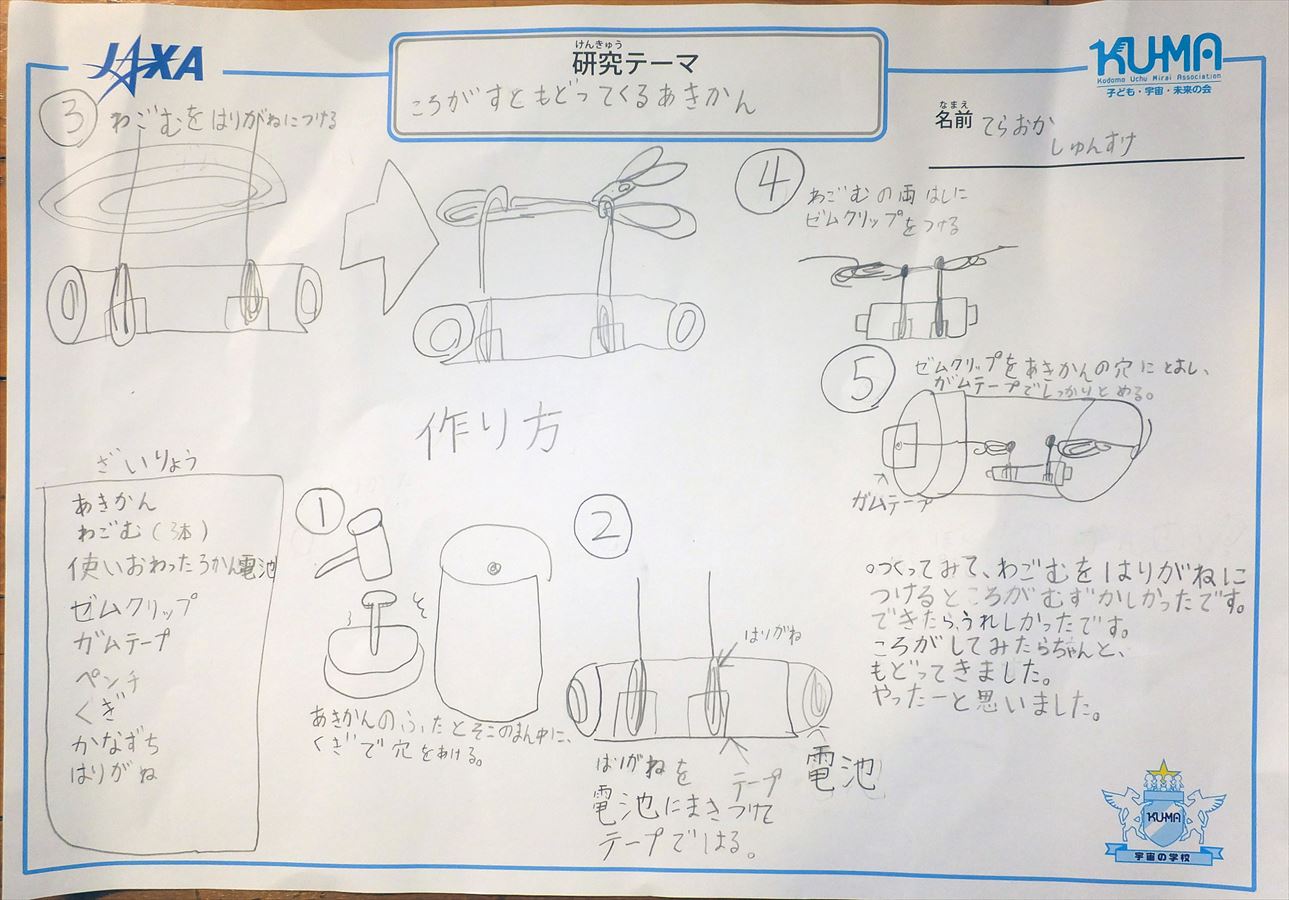 JAXA
けんきゅう
研究テーマ
ころがすともどってくるあきかん
KU-MA
Kodomo Uchu Mirai Association
子ども・宇宙・未来の会
なまえ
名前 てらおか
しゅんすけ
作り方
ざいりょう
あきかん
わごむ(3本)
使いおわったろかん電池
ゼムクリップ
ガムテープ
ペンチ
くぎ
かなずち
はりがね
①
あきかんのふたとそこのまん中に、
くぎで穴をあける。
②
はりがね
はりがねを
電池にまきつけて
テープではる。
テープ
電池
③ わごむをはりがねにつける
④
わごむの両はしに
ゼムクリップをつける
⑤
ゼムクリップをあきかんの穴にとおし、
ガムテープでしっかりとめる。
ガムテープ
○つくってみて、わごむをはりがねに
つけるところがむずかしかったです。
できたら、うれしかったです。
ころがしてみたらちゃんと、
もどってきました。
やったーと思いました。
KU-MA
宇宙の学校